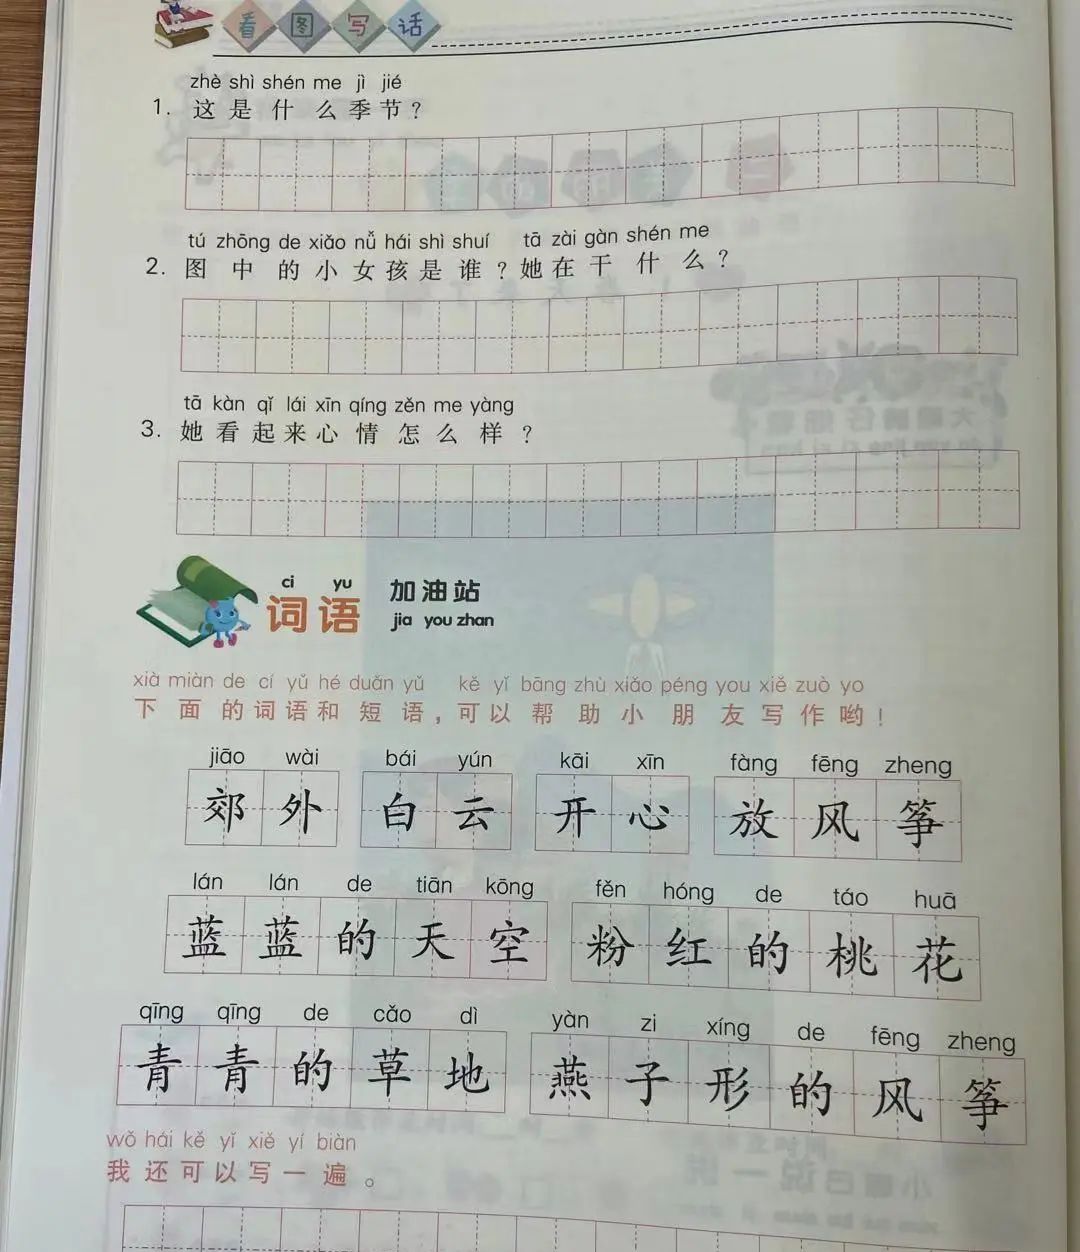 看图写话
zhè shì shén me jì jié
1. 这是什么季节？
tú zhōng de xiǎo nǚ hái shì shuí tā zài gàn shén me
2. 图中的小女孩是谁？她在干什么？
tā kàn qǐ lái xīn qíng zěn me yàng
3. 她看起来心情怎么样？
ci yu
词语 加油站
jia you zhan
xià miàn de cí yǔ hé duǎn yǔ kě yǐ bāng zhù xiǎo péng you xiě zuò yo
下面的词语和短语，可以帮助小朋友写作哟！
jiāo wài bái yún kāi xīn fàng fēng zheng
郊外 白云 开心 放风筝
lán lán de tiān kōng fěn hóng de táo huā
蓝蓝的天空 粉红的桃花
qīng qīng de cǎo dì yàn zi xíng de fēng zheng
青青的草地 燕子形的风筝
wǒ hái kě yǐ xiě yí biàn
我还可以写一遍。